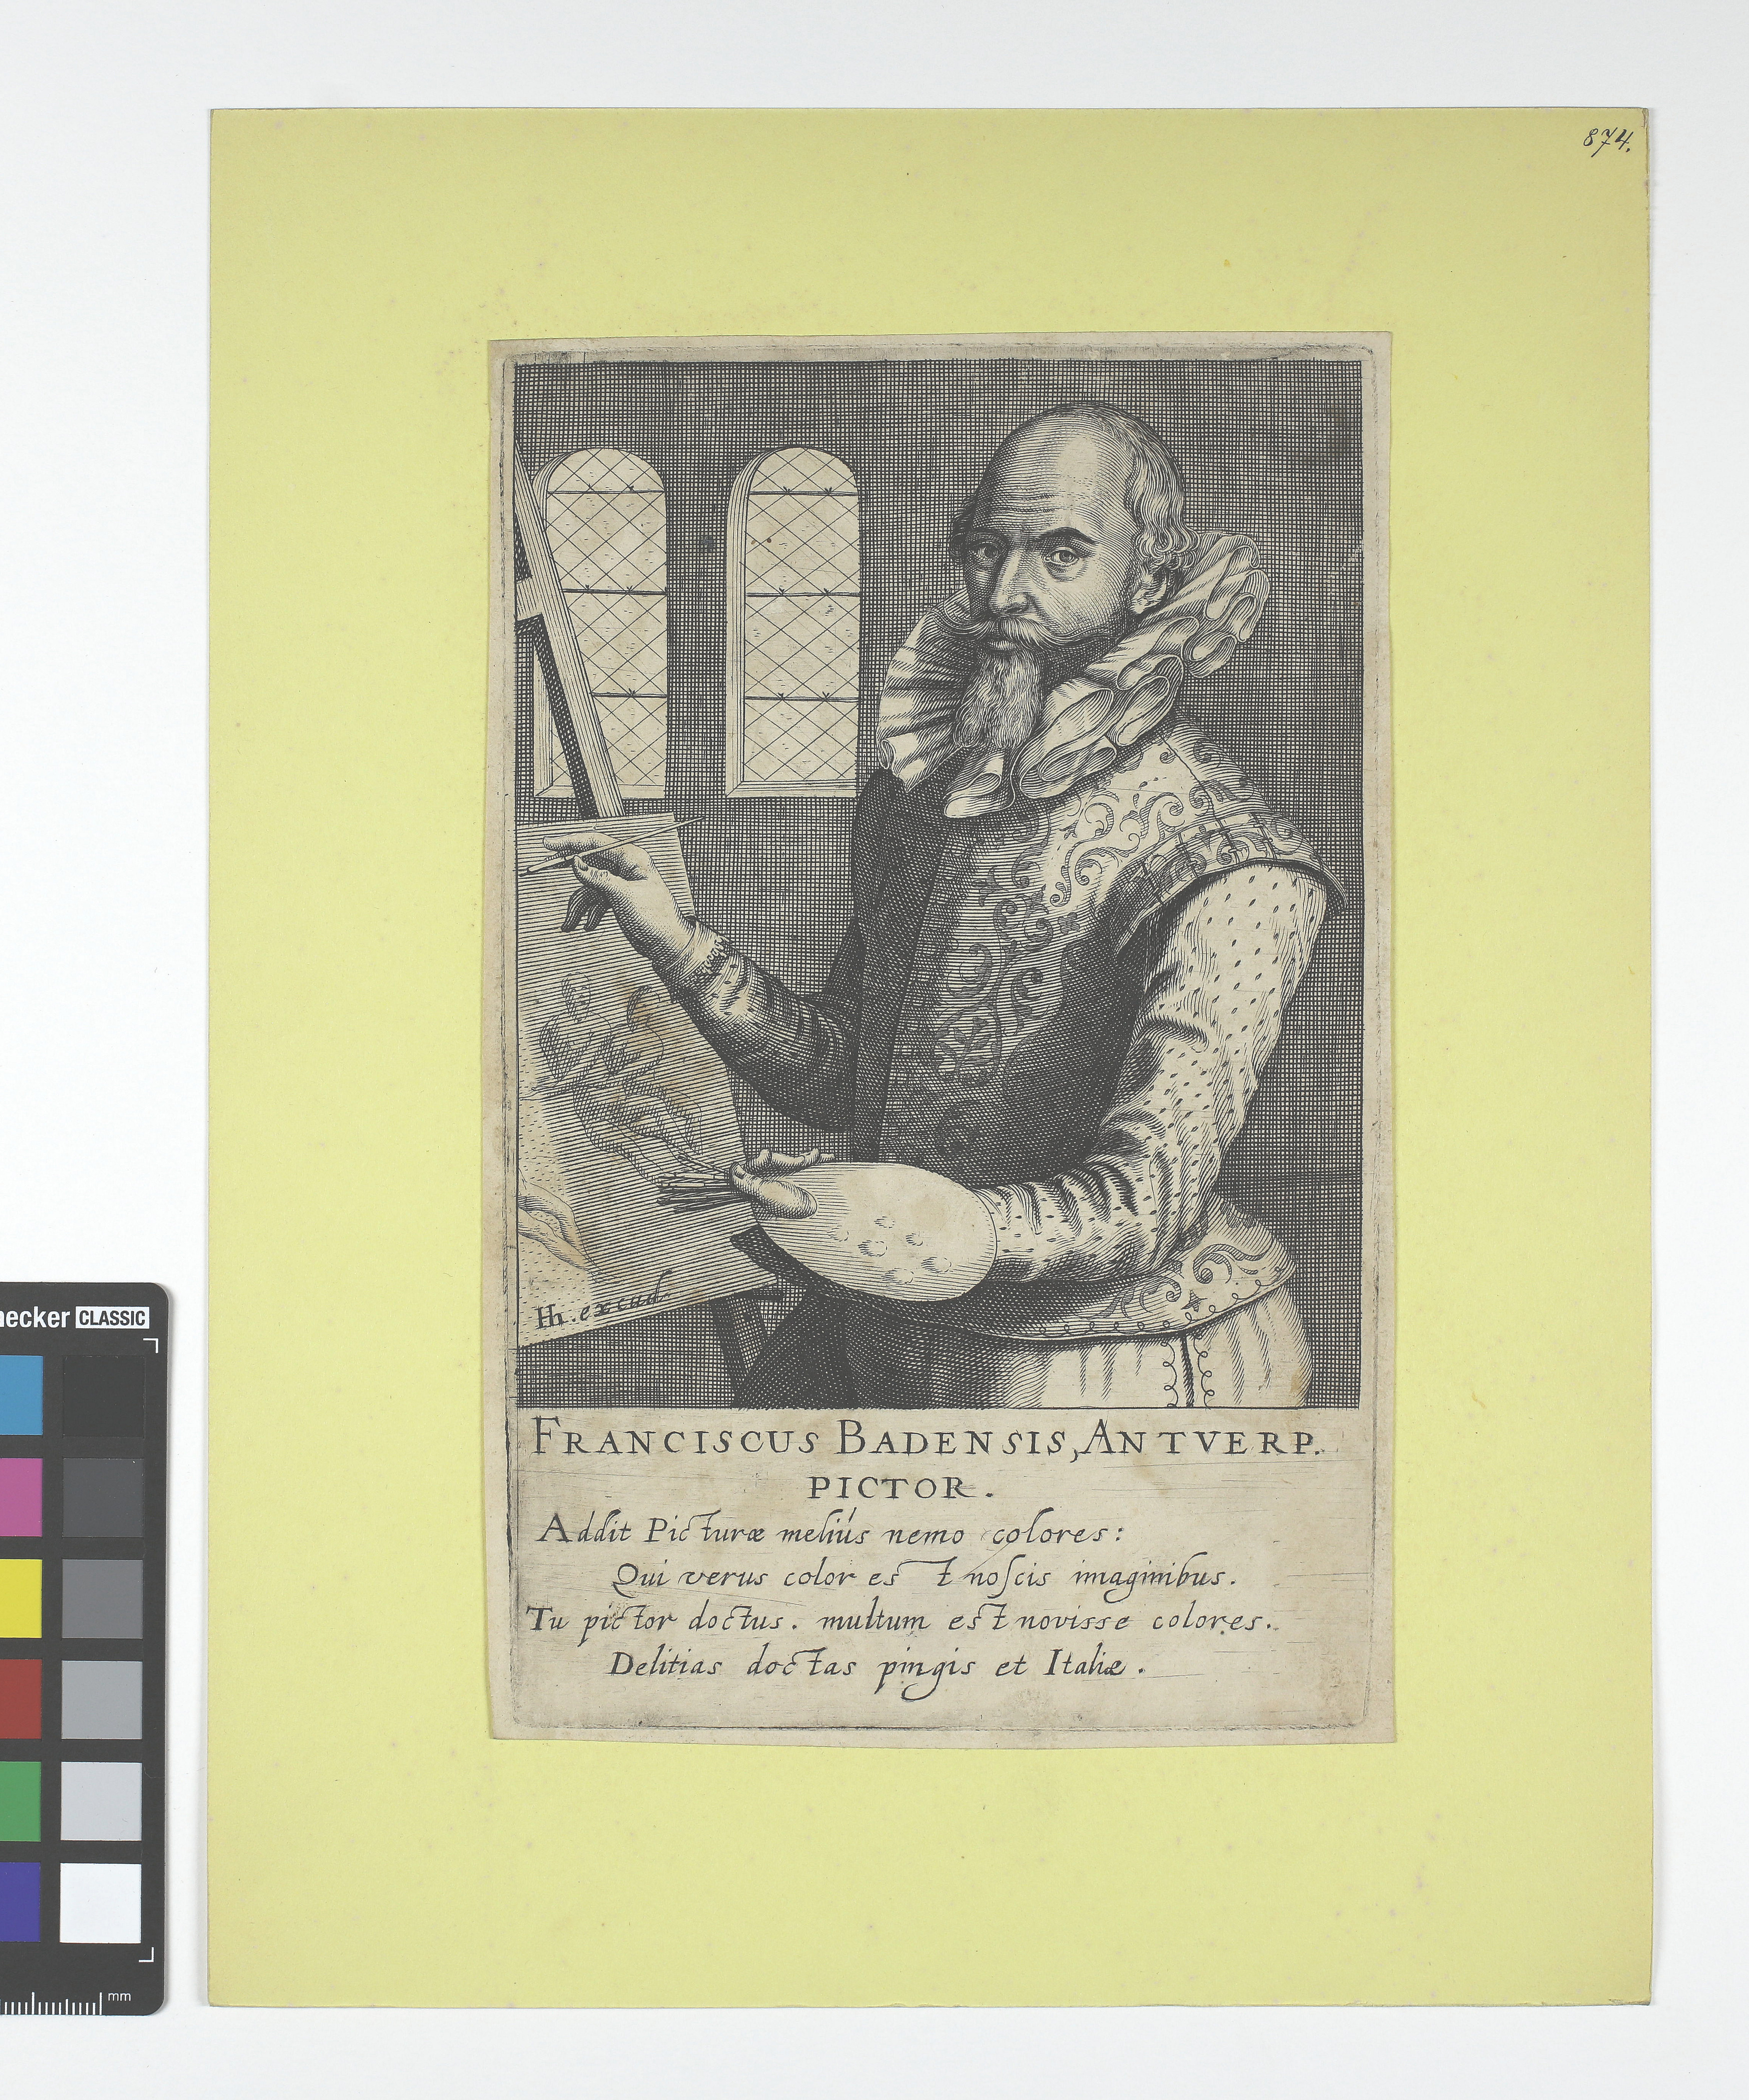 874.
Hh. excud.
FRANCISCUS BADENSIS, ANTVERP.
PICTOR.
Addit Picturæ meliús nemo colores:
Qui verus color est noſcis imaginibus.
Tu pictor doctus. multum est novisse colores.
Delitias doctas pingis et Italiæ.
necker CLASSIC
mm